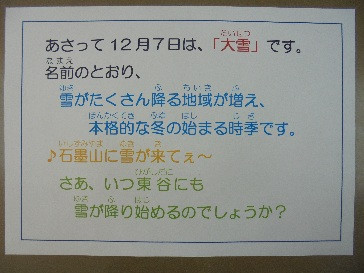 あさって１２月７日は、「大雪」です。
名前のとおり、
雪がたくさん降る地域が増え、
本格的な冬の始まる時季です。
♪石墨山に雪が来てぇ～
さあ、いつ東谷にも
雪が降り始めるのでしょうか？